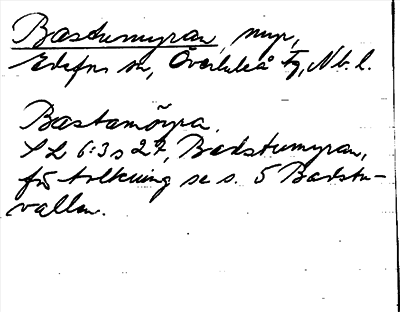 Bastumyran, myr,
Edefors sn, Överluleå tg, Nb. l.
Bastamöyra.
SL 6:3 s 27, Badstumyran,
för tolkning se s. 5 Badstu-
vallen.